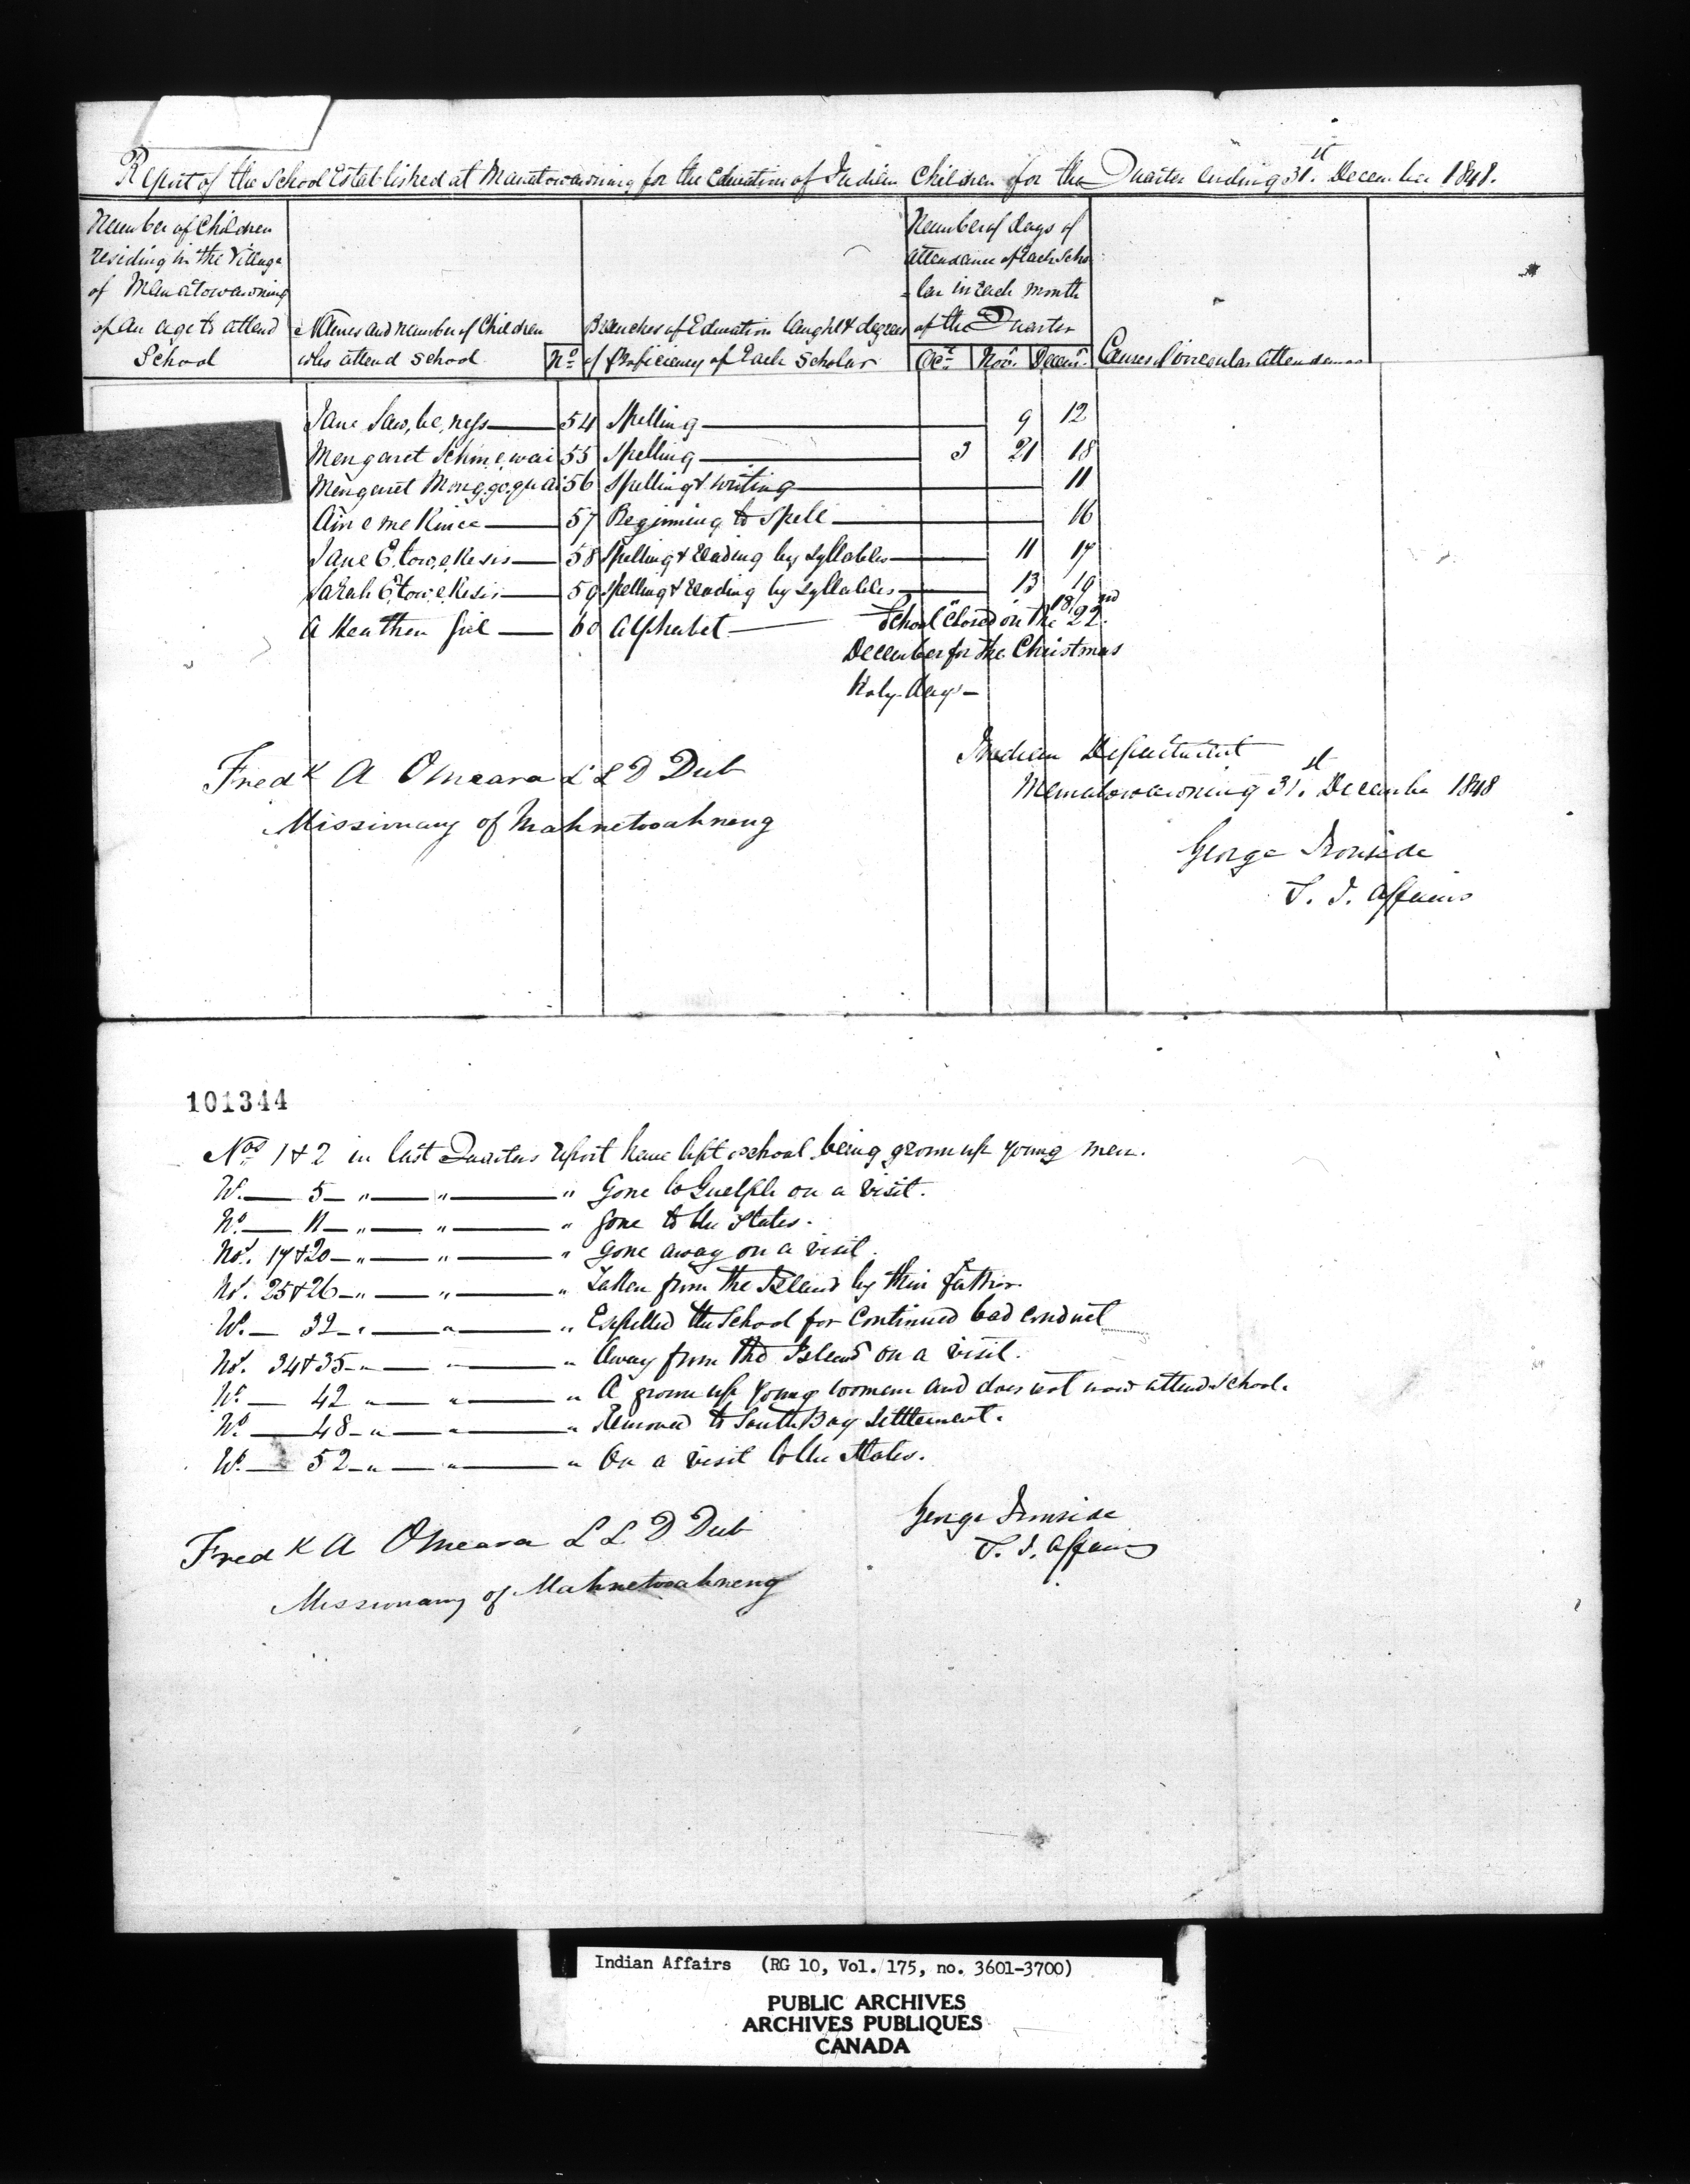 Report of the School Established at Manatowawning for the Education of Indian Children for the Quarter ending 31st. December 1848.
Number of Children
residing in the Village
of Manatowawning
of an age to attend
School
Names and number of Children
who attend School
No.
Branches of Education taught & degree
of Proficiency of Each Scholar
Number of days of
attendance of Each Scho
-lar in Each Month
of the Quarter
Oct. Nov. Decem.
Causes of irregular attendance
Jane Saw,be,ness — 54 Spelling — 9 12
Mengaret Schin,e,wai 55 Spelling — 3 21 18
Mengaret Mong,go,quai 56 Spelling & writing — 11
Ain e me Kince — 57 Beginning to Spell — 16
Jane E,tow,e,Kesis — 58 Spelling & reading by Syllables — 11 17
Sarah E,tow,e,Kesis — 59 Spelling & reading by Syllables — 13 19
A Heathen Girl — 60 Alphabet — " 18
School closed on the 22nd.
December for the Christmas
Holy-days —
Fredk A OMeara LLD Dub
Missionary of Mahnetooahneng
Indian Department
Manatowawning 31st. December 1848
George Ironside
S. I. Affairs
101344
Nos 1 & 2 in last Quarters report have left school being grown up young men.
No. — 5 — " — " — " Gone to Guelph on a visit.
No. — 11 — " — " — " Gone to the States.
Nos. 17 & 20 — " — " — " Gone away on a visit.
Nos. 25 & 26 — " — " — " Taken from the Island by their father.
No. — 32 — " — " — " Expelled the School for Continued bad conduct
Nos. 34 & 35 — " — " — " Away from the Island on a visit.
No. — 42 " — " — " A grown up young woman and does not now attend school.
No. — 48 — " — " — " Removed to South Bay Settlement.
No. — 52 — " — " — " On a visit to the States.
Fredk A OMeara LLD Dub
Missionary of Mahnetooahneng
George Ironside
S. I. Affairs
Indian Affairs (RG 10, Vol. 175, no. 3601-3700)
PUBLIC ARCHIVES
ARCHIVES PUBLIQUES
CANADA